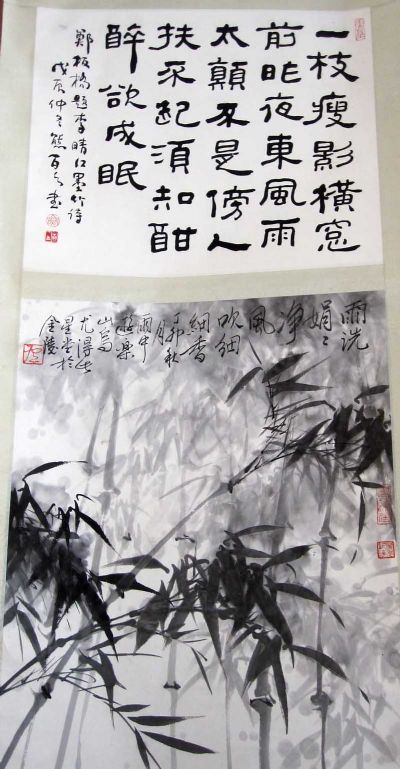 一枝瘦影橫窓
前昨夜東風雨
太顛不是傍人
扶不起須知酣
醉欲成眠
鄭板橋題李晴江墨竹詩
戊辰仲冬熊百之書
雨洗
娟〻
淨
風
吹細
細香
丁卯秋
月
雨中
山寫
星堂於
金陵